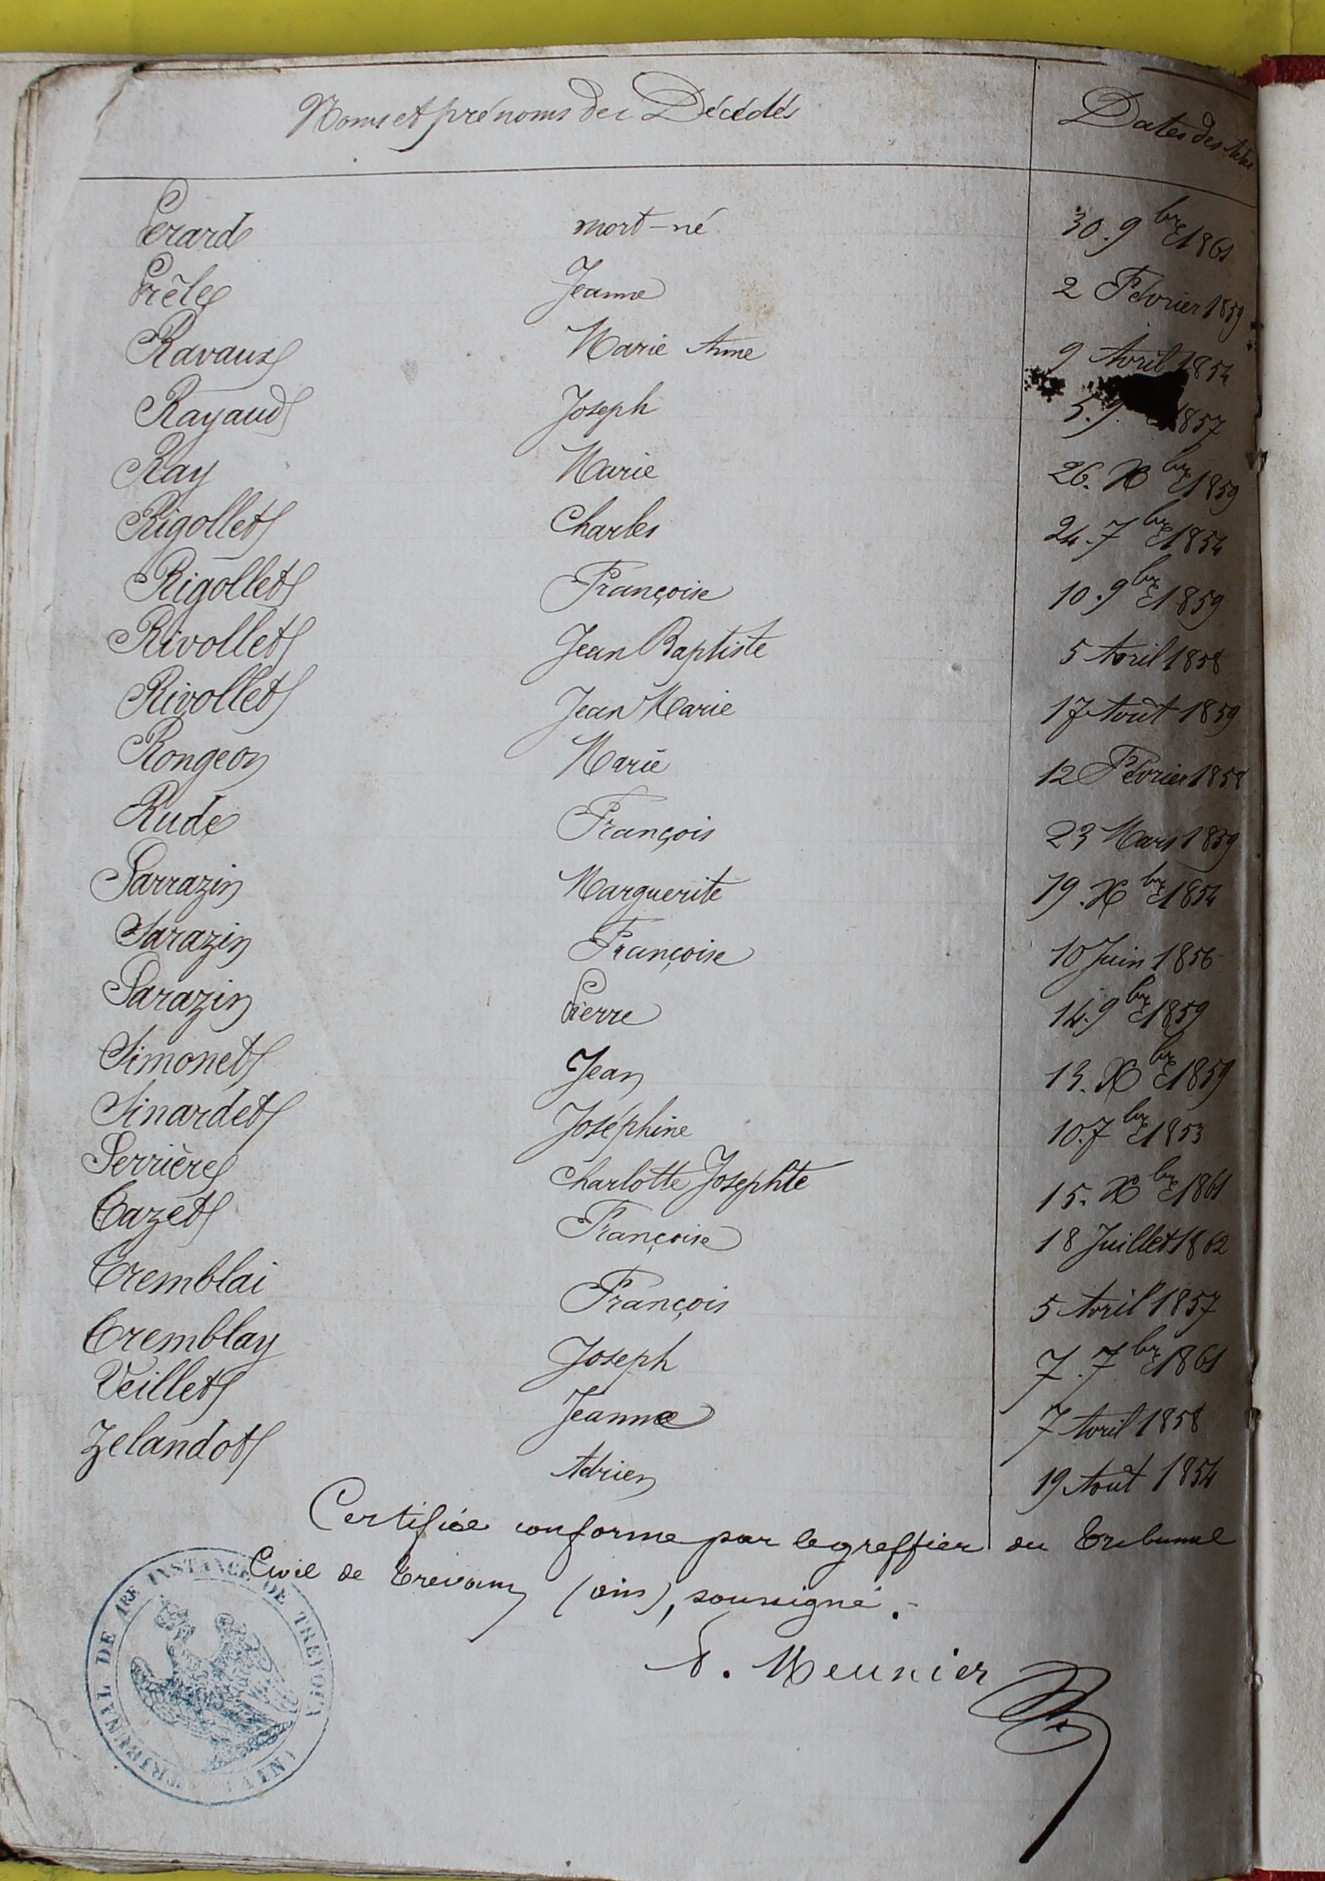 Noms et prénoms des Décédés Dates des
Perard mort-né 30. 9bre 1861
Prêle Jeanne 2 Février 1859
Ravaux Marie Anne 9 Avril 1854
Rayaud Joseph 5. 9 1857
Ray Marie 26. Xbre 1859
Rigollet Charles 24. 7bre 1854
Rigollet Françoise 10. 9bre 1859
Rivollet Jean Baptiste 5 Avril 1858
Rivollet Jean Marie 17 Août 1859
Rongeon Marie 12 Février 1858
Rude François 23 Mars 1859
Sarrazin Marguerite 19. Xbre 1854
Sarazin Françoise 10 Juin 1856
Sarazin Pierre 14. 9bre 1859
Simonet Jean 13. Xbre 1859
Sinardet Joséphine 10. 7bre 1853
Serrière Charlotte Josephte 15. Xbre 1861
Tazet Françoise 18 Juillet 1862
Tremblai François 5 Avril 1857
Tremblay Joseph 7. 7bre 1861
Veillet Jeanne 7 Avril 1858
Zelandot Adrien 19 Août 1854
Certifiée conforme par le greffier du Tribunal
Civil de Trévoux (ain), soussigné.
A. Meunier
TRIBUNAL DE 1ERE INSTANCE DE TREVOUX (AIN)